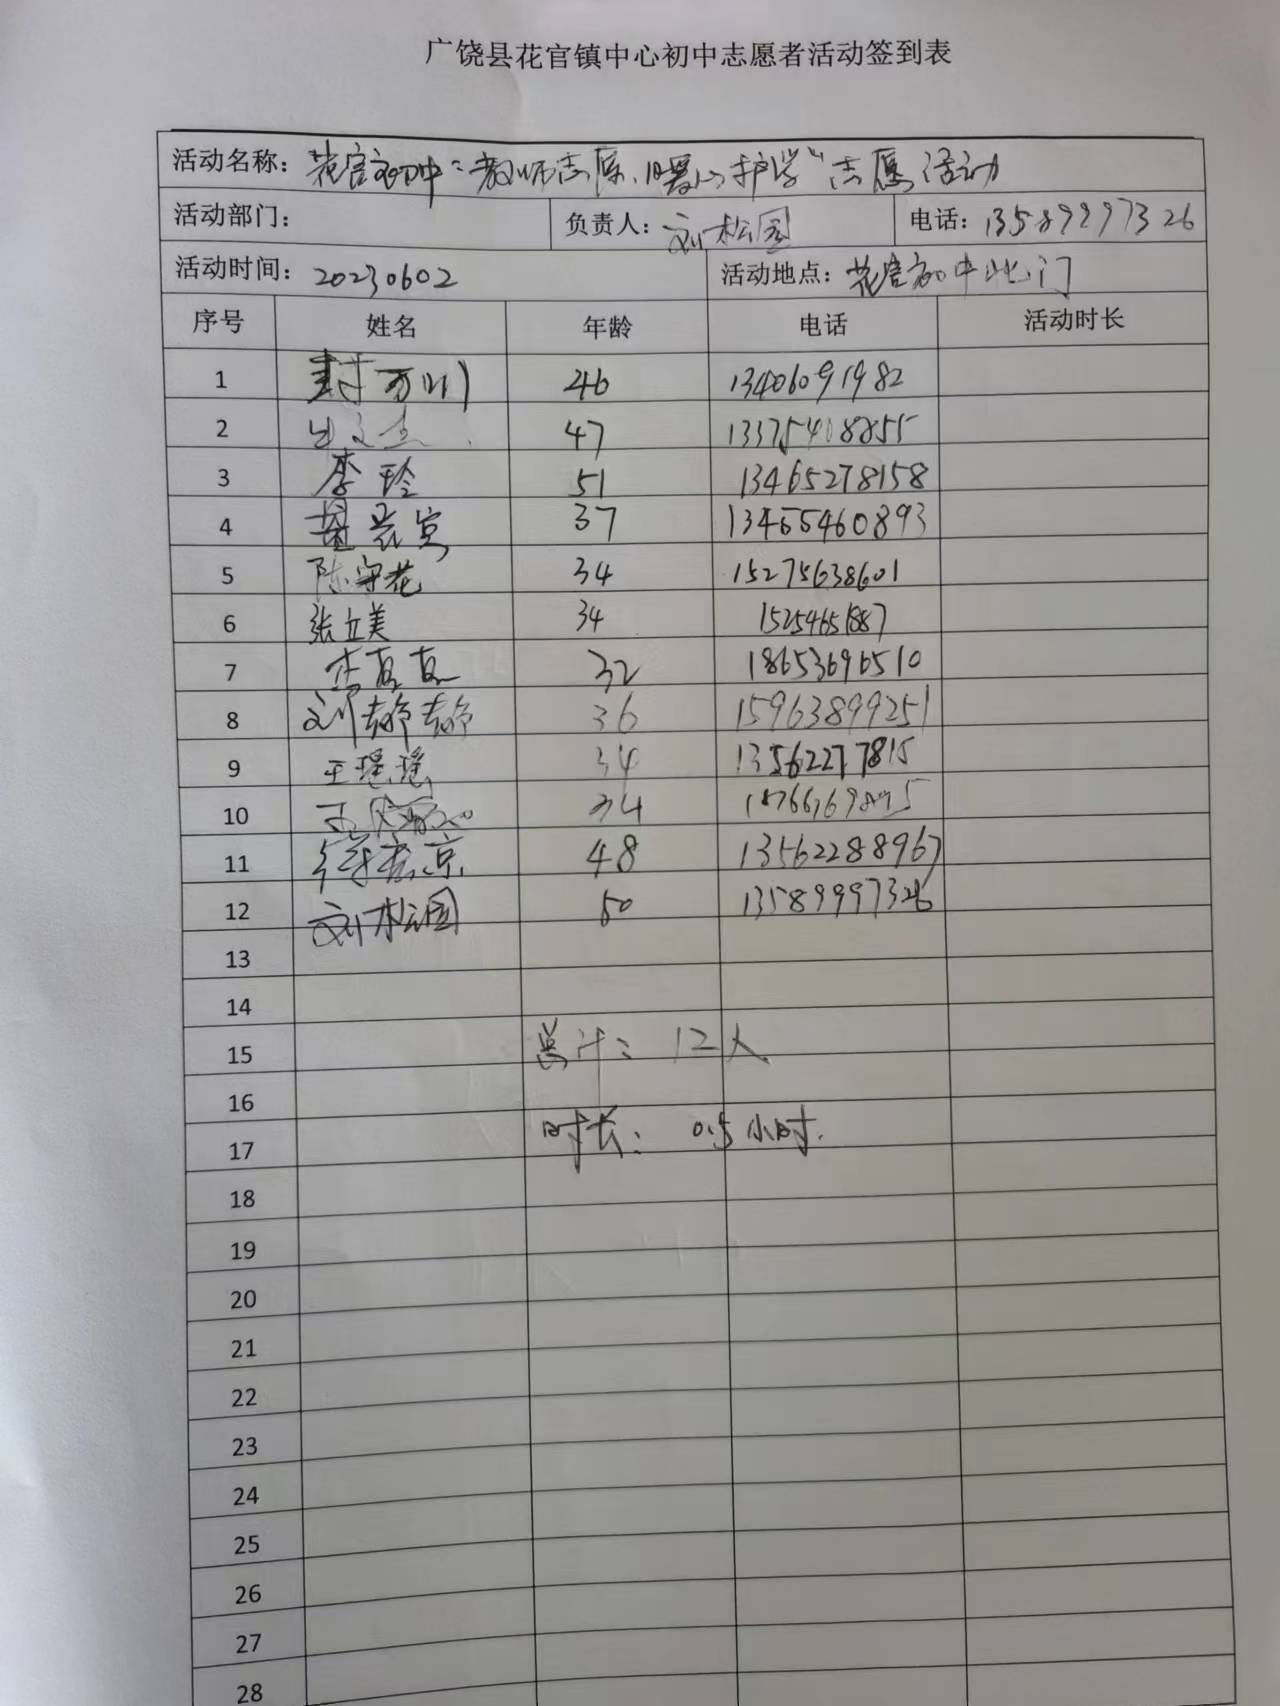 广饶县花官镇中心初中志愿者活动签到表
活动名称：花官初中“教师志愿、暖心护学”志愿活动
活动部门： 负责人：刘松园 电话：13589997326
活动时间：20230602 活动地点：花官初中北门
序号 姓名 年龄 电话 活动时长
1 封万川 46 13406091982
2 47
3 李玲 51 13465278158
4 37 13465460893
5 陈守花 34 15275638601
6 张立美 34 15254651887
7 32 18653696510
8 刘静静 36 15963899251
9 王瑶瑶 34 13562277815
10 34
11 48 13562288967
12 刘松园 50 13589997326
13
14
15 总计：12人
16
17 时长：0.5小时.
18
19
20
21
22
23
24
25
26
27
28